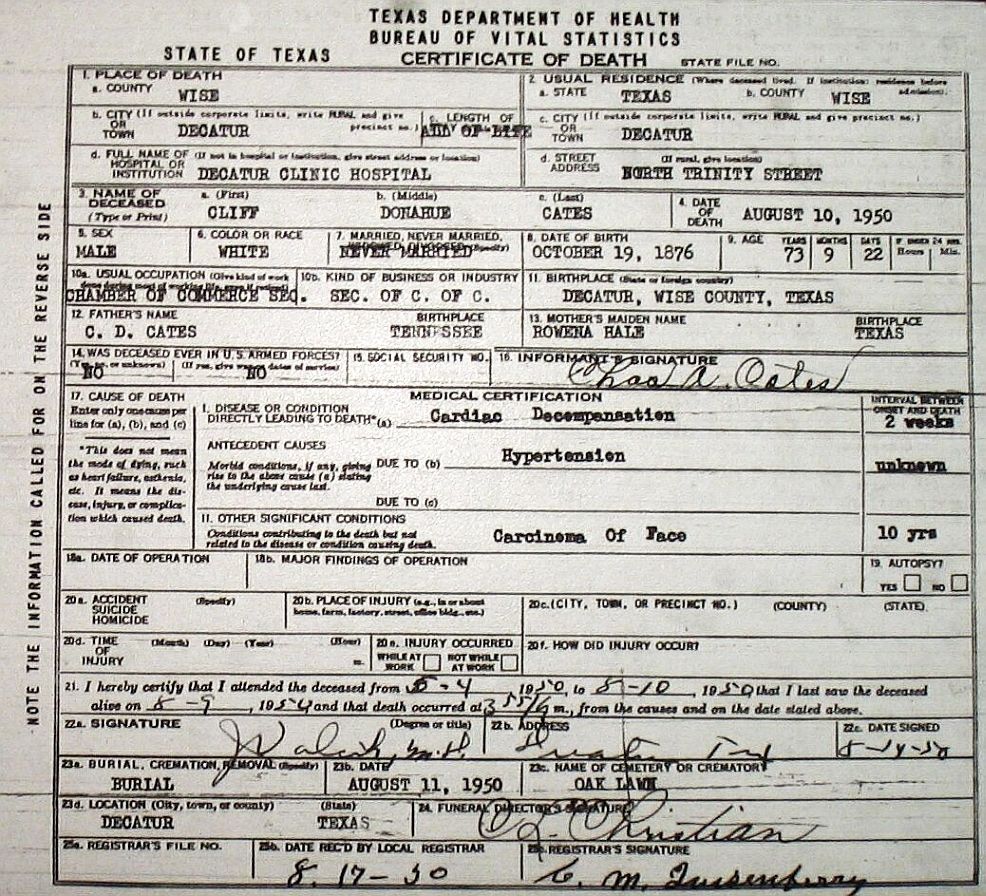 TEXAS DEPARTMENT OF HEALTH
BUREAU OF VITAL STATISTICS
STATE OF TEXAS CERTIFICATE OF DEATH STATE FILE NO.
NOTE THE INFORMATION CALLED FOR ON THE REVERSE SIDE
1. PLACE OF DEATH
a. COUNTY WISE
2. USUAL RESIDENCE (Where deceased lived. If institution: residence before admission).
a. STATE TEXAS b. COUNTY WISE
b. CITY (If outside corporate limits, write RURAL and give precinct no.)
OR TOWN DECATUR
c. LENGTH OF
ALL OF LIFE
c. CITY (If outside corporate limits, write RURAL and give precinct no.)
OR TOWN DECATUR
d. FULL NAME OF (If not in hospital or institution, give street address or location)
HOSPITAL OR
INSTITUTION DECATUR CLINIC HOSPITAL
d. STREET (If rural, give location)
ADDRESS NORTH TRINITY STREET
3. NAME OF DECEASED (Type or Print)
a. (First) b. (Middle) c. (Last)
CLIFF DONAHUE CATES
4. DATE OF DEATH AUGUST 10, 1950
5. SEX
MALE
6. COLOR OR RACE
WHITE
7. MARRIED, NEVER MARRIED, WIDOWED, DIVORCED (Specify)
NEVER MARRIED
8. DATE OF BIRTH
OCTOBER 19, 1876
9. AGE YEARS MONTHS DAYS IF UNDER 24 HRS.
Hours Min.
73 9 22
10a. USUAL OCCUPATION (Give kind of work done during most of working life, even if retired)
CHAMBER OF COMMERCE SEC.
10b. KIND OF BUSINESS OR INDUSTRY
SEC. OF C. OF C.
11. BIRTHPLACE (State or foreign country)
DECATUR, WISE COUNTY, TEXAS
12. FATHER'S NAME BIRTHPLACE
C. D. CATES TENNESSEE
13. MOTHER'S MAIDEN NAME BIRTHPLACE
ROWENA HALE TEXAS
14. WAS DECEASED EVER IN U.S. ARMED FORCES?
(Yes, no, or unknown) (If yes, give war or dates of service)
NO NO
15. SOCIAL SECURITY NO.
16. INFORMANT'S SIGNATURE
Chas A. Cates
17. CAUSE OF DEATH
Enter only one cause per
line for (a), (b), and (c)
*This does not mean
the mode of dying, such
as heart failure, asthenia,
etc. It means the dis-
ease, injury, or complica-
tion which caused death.
MEDICAL CERTIFICATION
INTERVAL BETWEEN
ONSET AND DEATH
I. DISEASE OR CONDITION
DIRECTLY LEADING TO DEATH*(a) Cardiac Decompensation 2 weeks
ANTECEDENT CAUSES
Morbid conditions, if any, giving
rise to the above cause (a) stating
the underlying cause last.
DUE TO (b) Hypertension unknown
DUE TO (c)
II. OTHER SIGNIFICANT CONDITIONS
Conditions contributing to the death but not
related to the disease or condition causing death.
Carcinoma Of Face 10 yrs
18a. DATE OF OPERATION
18b. MAJOR FINDINGS OF OPERATION
19. AUTOPSY?
YES NO
20a. ACCIDENT (Specify)
SUICIDE
HOMICIDE
20b. PLACE OF INJURY (e.g., in or about
home, farm, factory, street, office bldg., etc.)
20c. (CITY, TOWN, OR PRECINCT NO.) (COUNTY) (STATE)
20d. TIME (Month) (Day) (Year) (Hour)
OF
INJURY m.
20e. INJURY OCCURRED
WHILE AT WORK NOT WHILE AT WORK
20f. HOW DID INJURY OCCUR?
21. I hereby certify that I attended the deceased from 5-4 1950, to 8-10, 1950 that I last saw the deceased
alive on 8-9, 1950 and that death occurred at 3 55 m., from the causes and on the date stated above.
22a. SIGNATURE (Degree or title)
22b. ADDRESS
22c. DATE SIGNED
8-14-50
23a. BURIAL, CREMATION, REMOVAL (Specify)
BURIAL
23b. DATE
AUGUST 11, 1950
23c. NAME OF CEMETERY OR CREMATORY
OAK LAWN
23d. LOCATION (City, town, or county) (State)
DECATUR TEXAS
24. FUNERAL DIRECTOR'S SIGNATURE
Christian
25a. REGISTRAR'S FILE NO.
25b. DATE REC'D BY LOCAL REGISTRAR
8-17-50
25c. REGISTRAR'S SIGNATURE
C. M. Quisenberry